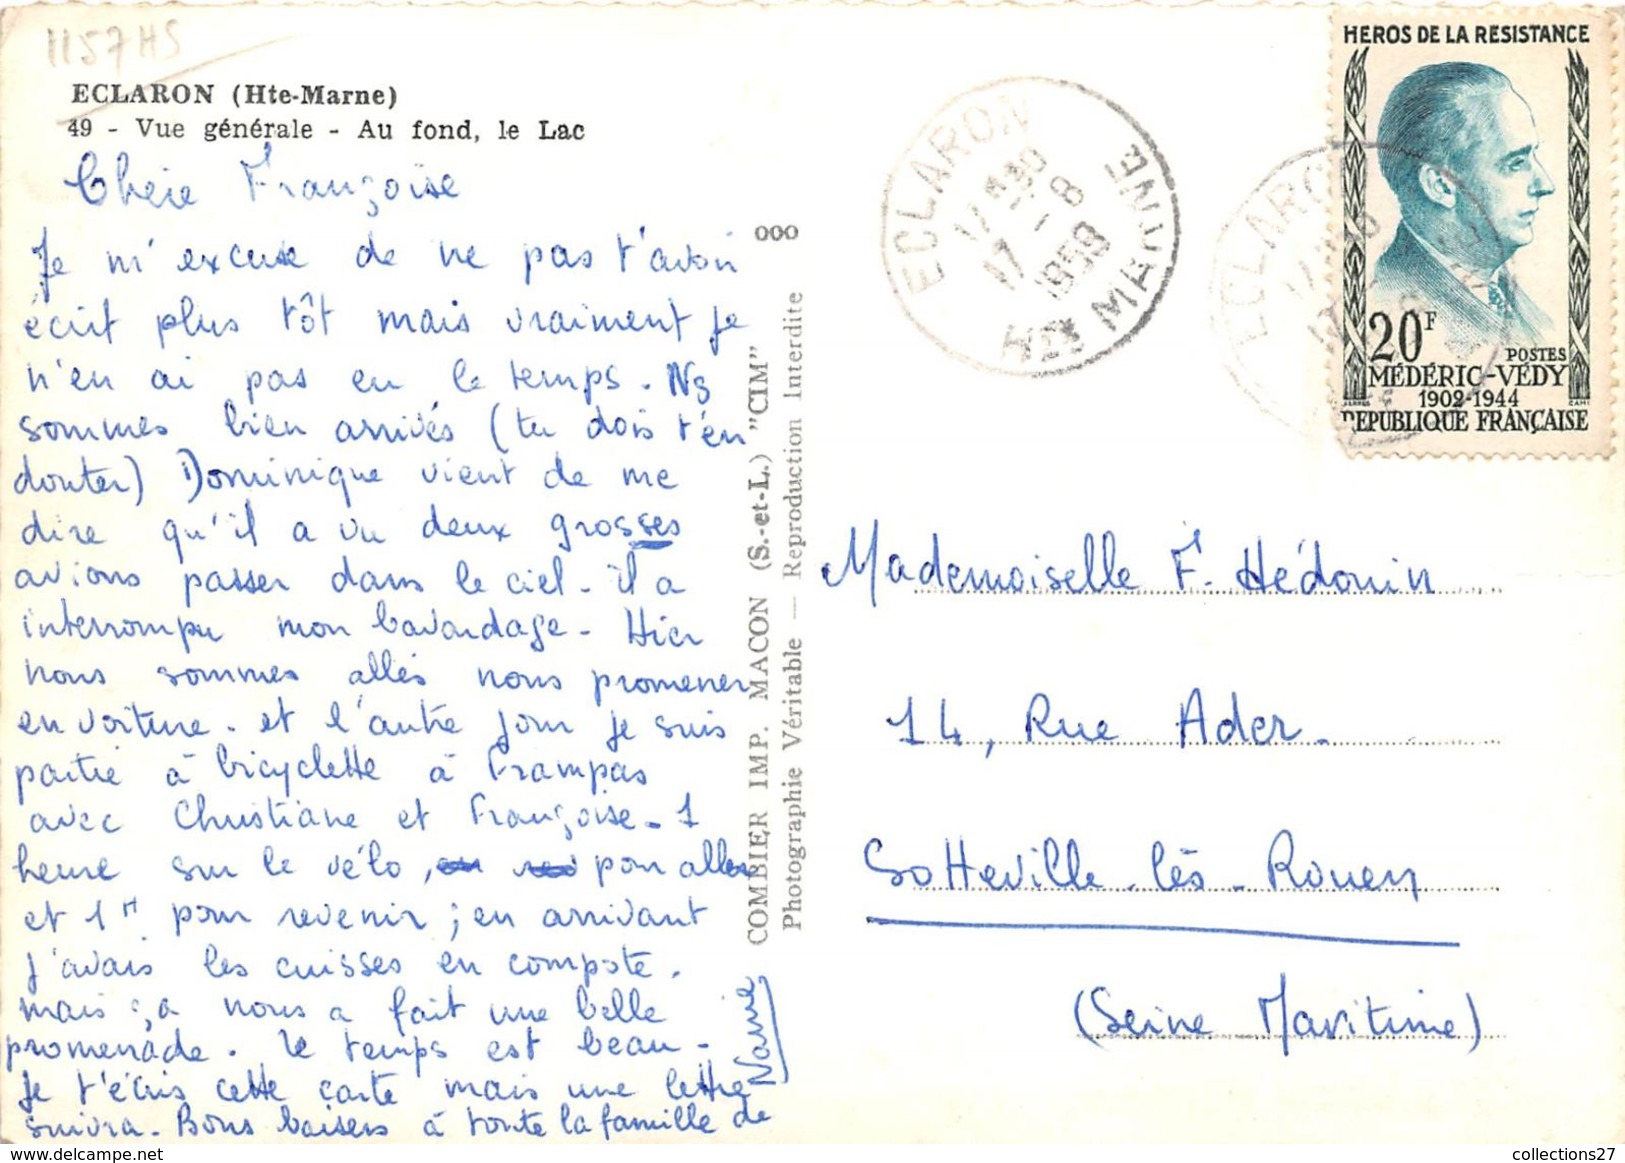 1157 HS
ECLARON (Hte-Marne)
49 - Vue générale - Au fond, le Lac
Chère Françoise
Je m'excuse de ne pas t'avoir
écrit plus tôt mais vraiment je
n'en ai pas eu le temps. Ns
sommes bien arrivés (tu dois t'en
douter) Dominique vient de me
dire qu'il a vu deux grosses
avions passer dans le ciel - il a
interrompu mon bavardage - Hier
nous sommes allés nous promener
en voiture - et l'autre jour je suis
partie à bicyclette à Frampas
avec Christiane et Françoise - 1
heure sur le vélo, pour aller
et 1H pour revenir ; en arrivant
j'avais les cuisses en compote.
mais ça nous a fait une belle
promenade. le temps est beau -
Je t'écris cette carte mais une lettre
suivra - Bons baisers à toute la famille de
000
COMBIER IMP. MACON (S.-et-L.) "CIM"
Photographie Véritable — Reproduction Interdite
ECLARON
17 H 30
17 - 8
1959
HTE MARNE
ECLARON
HEROS DE LA RESISTANCE
20F
POSTES
MÉDÉRIC-VÉDY
1902-1944
REPUBLIQUE FRANÇAISE
Mademoiselle F. Hédouin
14, Rue Ader.
Sotteville-lès-Rouen
(Seine Maritime)
collections27